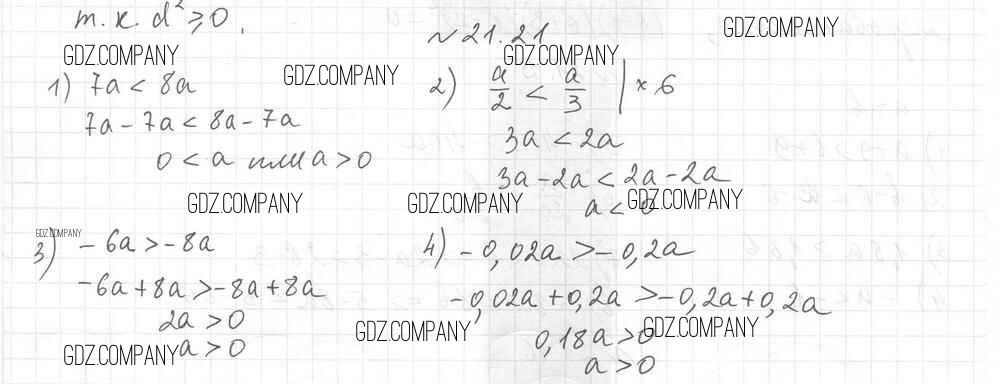 т.к. d² ≥ 0.
№ 21.21
1) 7a < 8a
7a - 7a < 8a - 7a
0 < a или a > 0
2) a/2 < a/3 | × 6
3a < 2a
3a - 2a < 2a - 2a
a < 0
3) - 6a > - 8a
- 6a + 8a > - 8a + 8a
2a > 0
a > 0
4) - 0,02a > - 0,2a
- 0,02a + 0,2a > - 0,2a + 0,2a
0,18a > 0
a > 0
GDZ.COMPANY
GDZ.COMPANY
GDZ.COMPANY
GDZ.COMPANY
GDZ.COMPANY
GDZ.COMPANY
GDZ.COMPANY
GDZ.COMPANY
GDZ.COMPANY
GDZ.COMPANY
GDZ.COMPANY